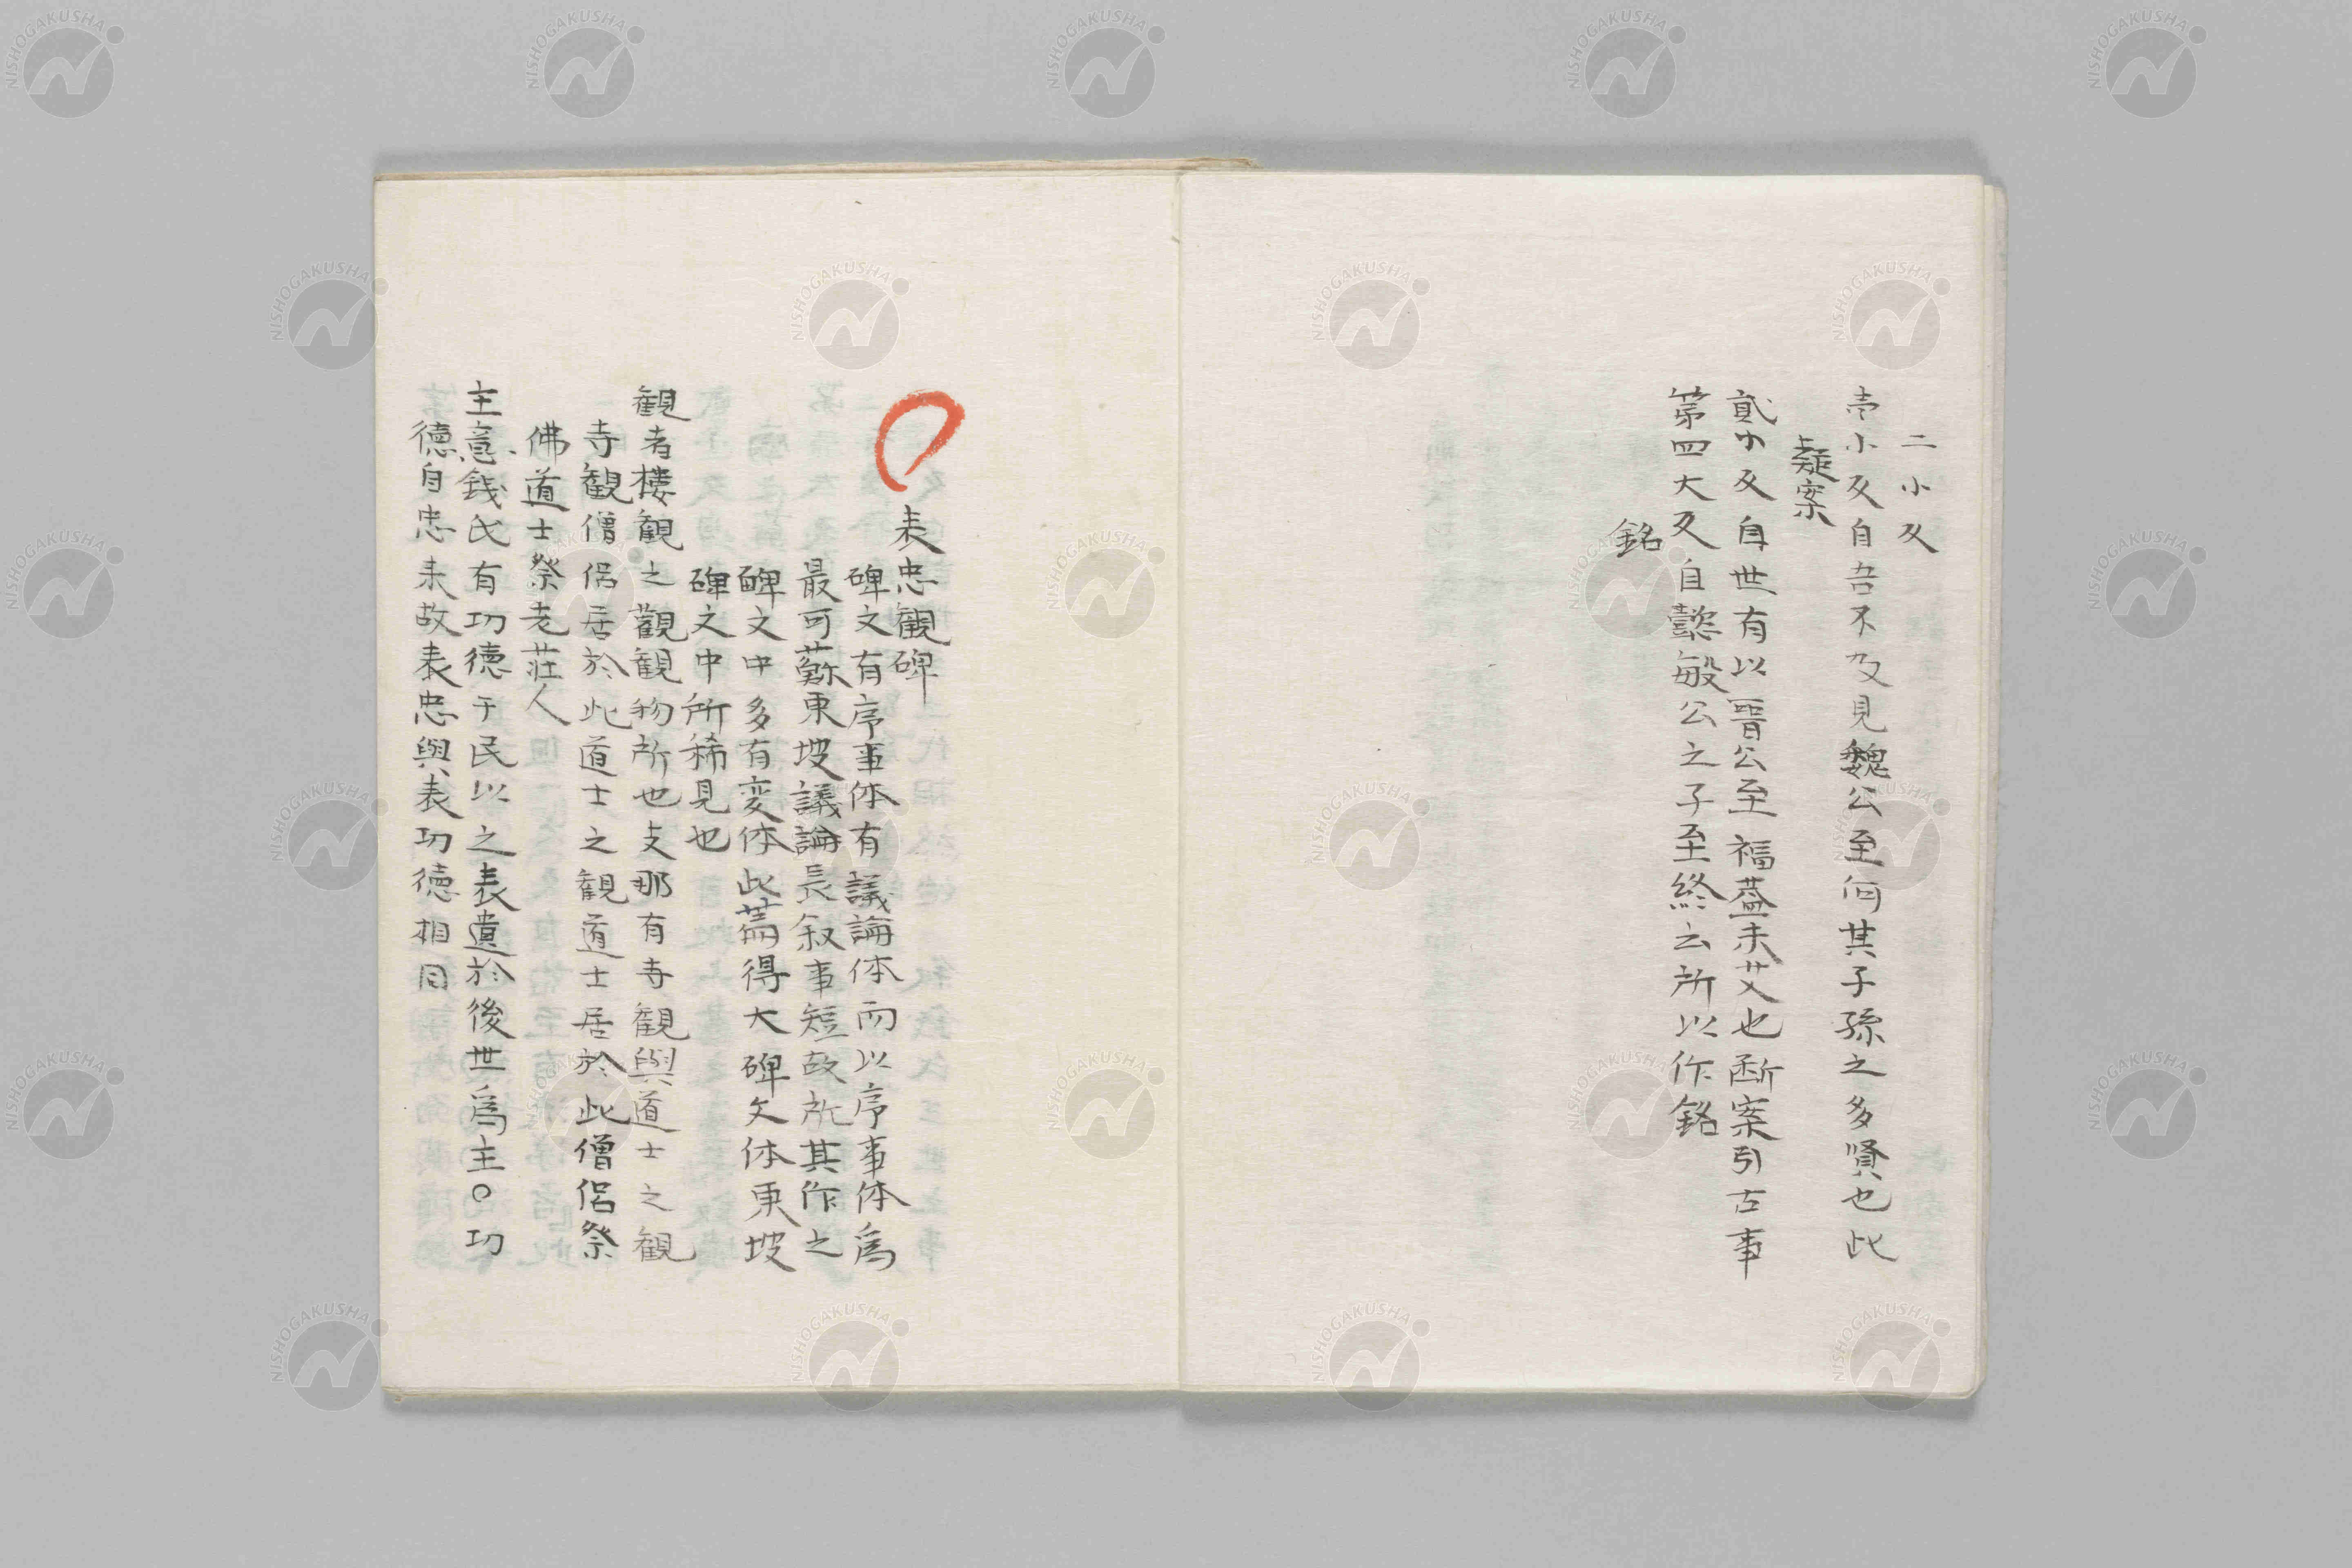 二小段
壱小段自吾不及見魏公至何其子孫之多賢也此
疑案
貮小段自世有以晋公至福蓋未艾也断案引古事
第四大段自懿敏公之子至終云所以作銘
銘
表忠観碑
碑文有序事体有議論体而以序事体為
最可蘇東坡議論長叙事短故於其作之
碑文中多有変体此篇得大碑文体東坡
碑文中所稀見也
観者楼観之觀観物所也支那有寺観與道士之観
寺観僧侶居於此道士之観道士居於此僧侶祭
佛道士祭老荘人
主意銭氏有功徳于民以之表遺於後世為主○功
徳自忠来故表忠與表功徳相同
NISHOGAKUSHA